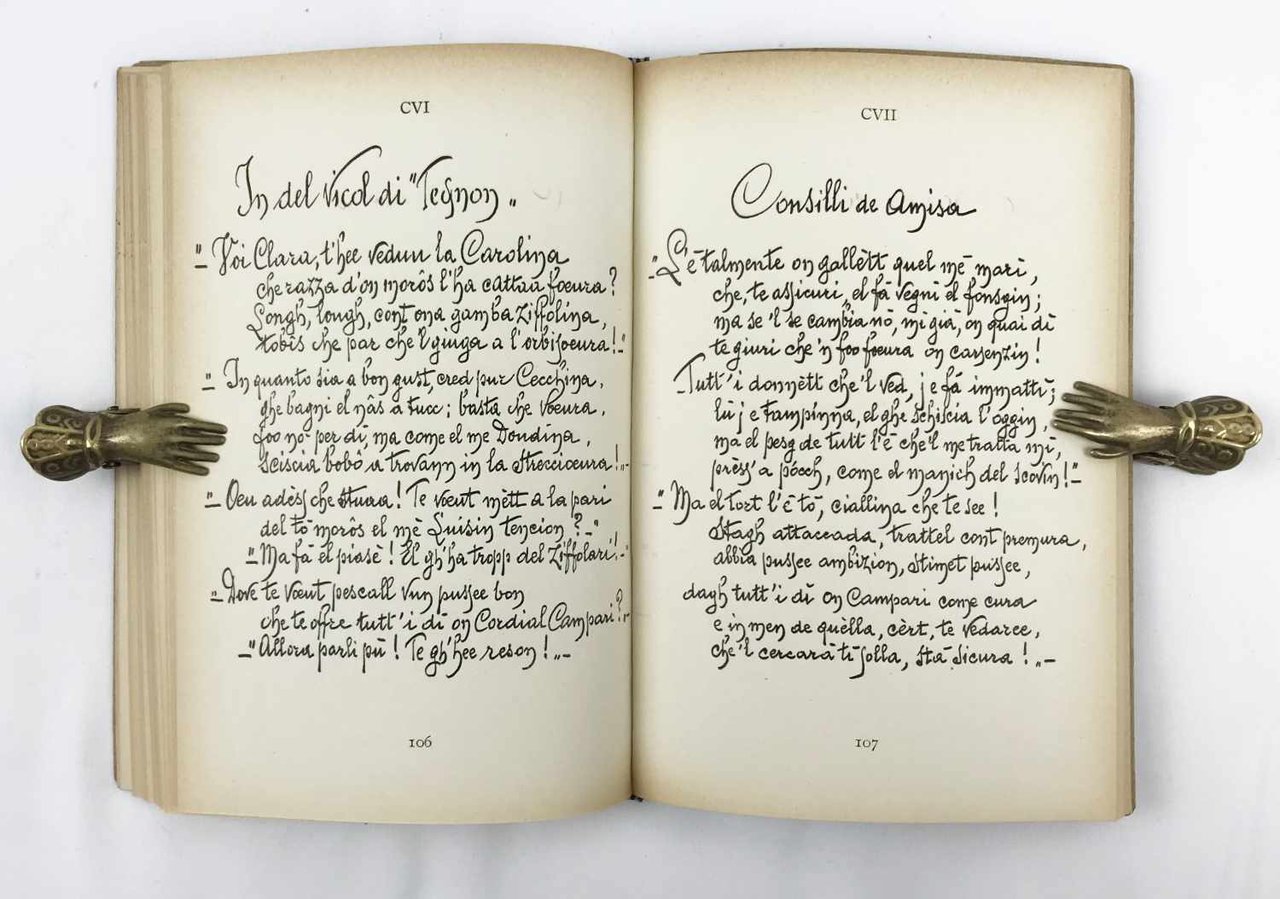 CVI
In del vicol di "Tegnon"
"Voi Clara, t'hee veduu la Carolina
che razza d'on morôs l'ha cattaa foeura?
Longh, longh, cont ona gamba ziffolina,
tobis che par che'l giuga a l'orbisoeura!"
"In quanto sia a bon gust, cred pur Cecchina,
ghe bagni el nâs a tucc; basta che voeura,
foo nò per dì, ma come el me Doudina,
sciscia bobô, a trovann in la streccioeura!"
"Oeu adèss che stuaa! Te voeut mètt a la pari
del tò morôs el mè Luisin tencion?"
"Ma fà el piasè! El gh'ha tropp del Ziffolari!"
"Dove te voeut pescall vun pussee bon
che te offre tutt'i dì on Cordial Campari?"
"Allora parli pù! Te gh'hee reson!"
106
CVII
Consilli de Amisa
"L'è talmente on gallètt quel mè marì,
che, te assicuri, el fà vegnì el fonsgin;
ma se 'l se cambia nò, mi già, on quai dì
te giuri che 'n foo foeura on carsenzin!
Tutt'i donnètt che'l ved, j e fà immattì;
lù j e tampinna, el ghe schiscia l'oggin,
ma el pesg de tutt l'è che'l me tratta mì,
prèss'a pòcch, come el manich del scovin!"
"Ma el tort l'è tò, ciallina che te see!
Stagh attaccada, trattel cont premura,
abbia pussee ambizion, stimet pussee,
dagh tutt'i dì on Campari come cura
e in men de quèlla, cèrt, te vedaree,
che'l cercarà tì solla, stà sicura!"
107